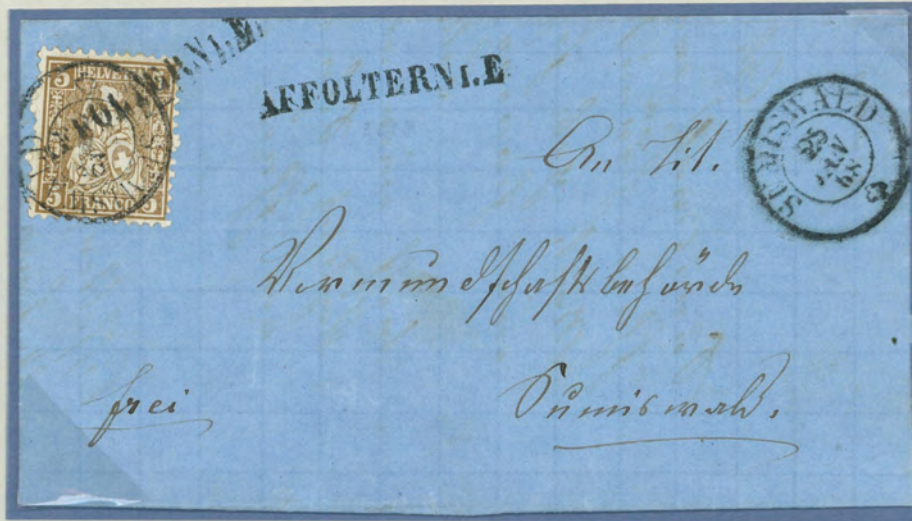 5 HELVETIA 5
5 FRANCO 5
AFFOLTERN i.E.
AFFOLTERN i.E
SUMISWALD
25
68
An Tit.
Vormundschaftsbehörde
frei
Sumiswald.